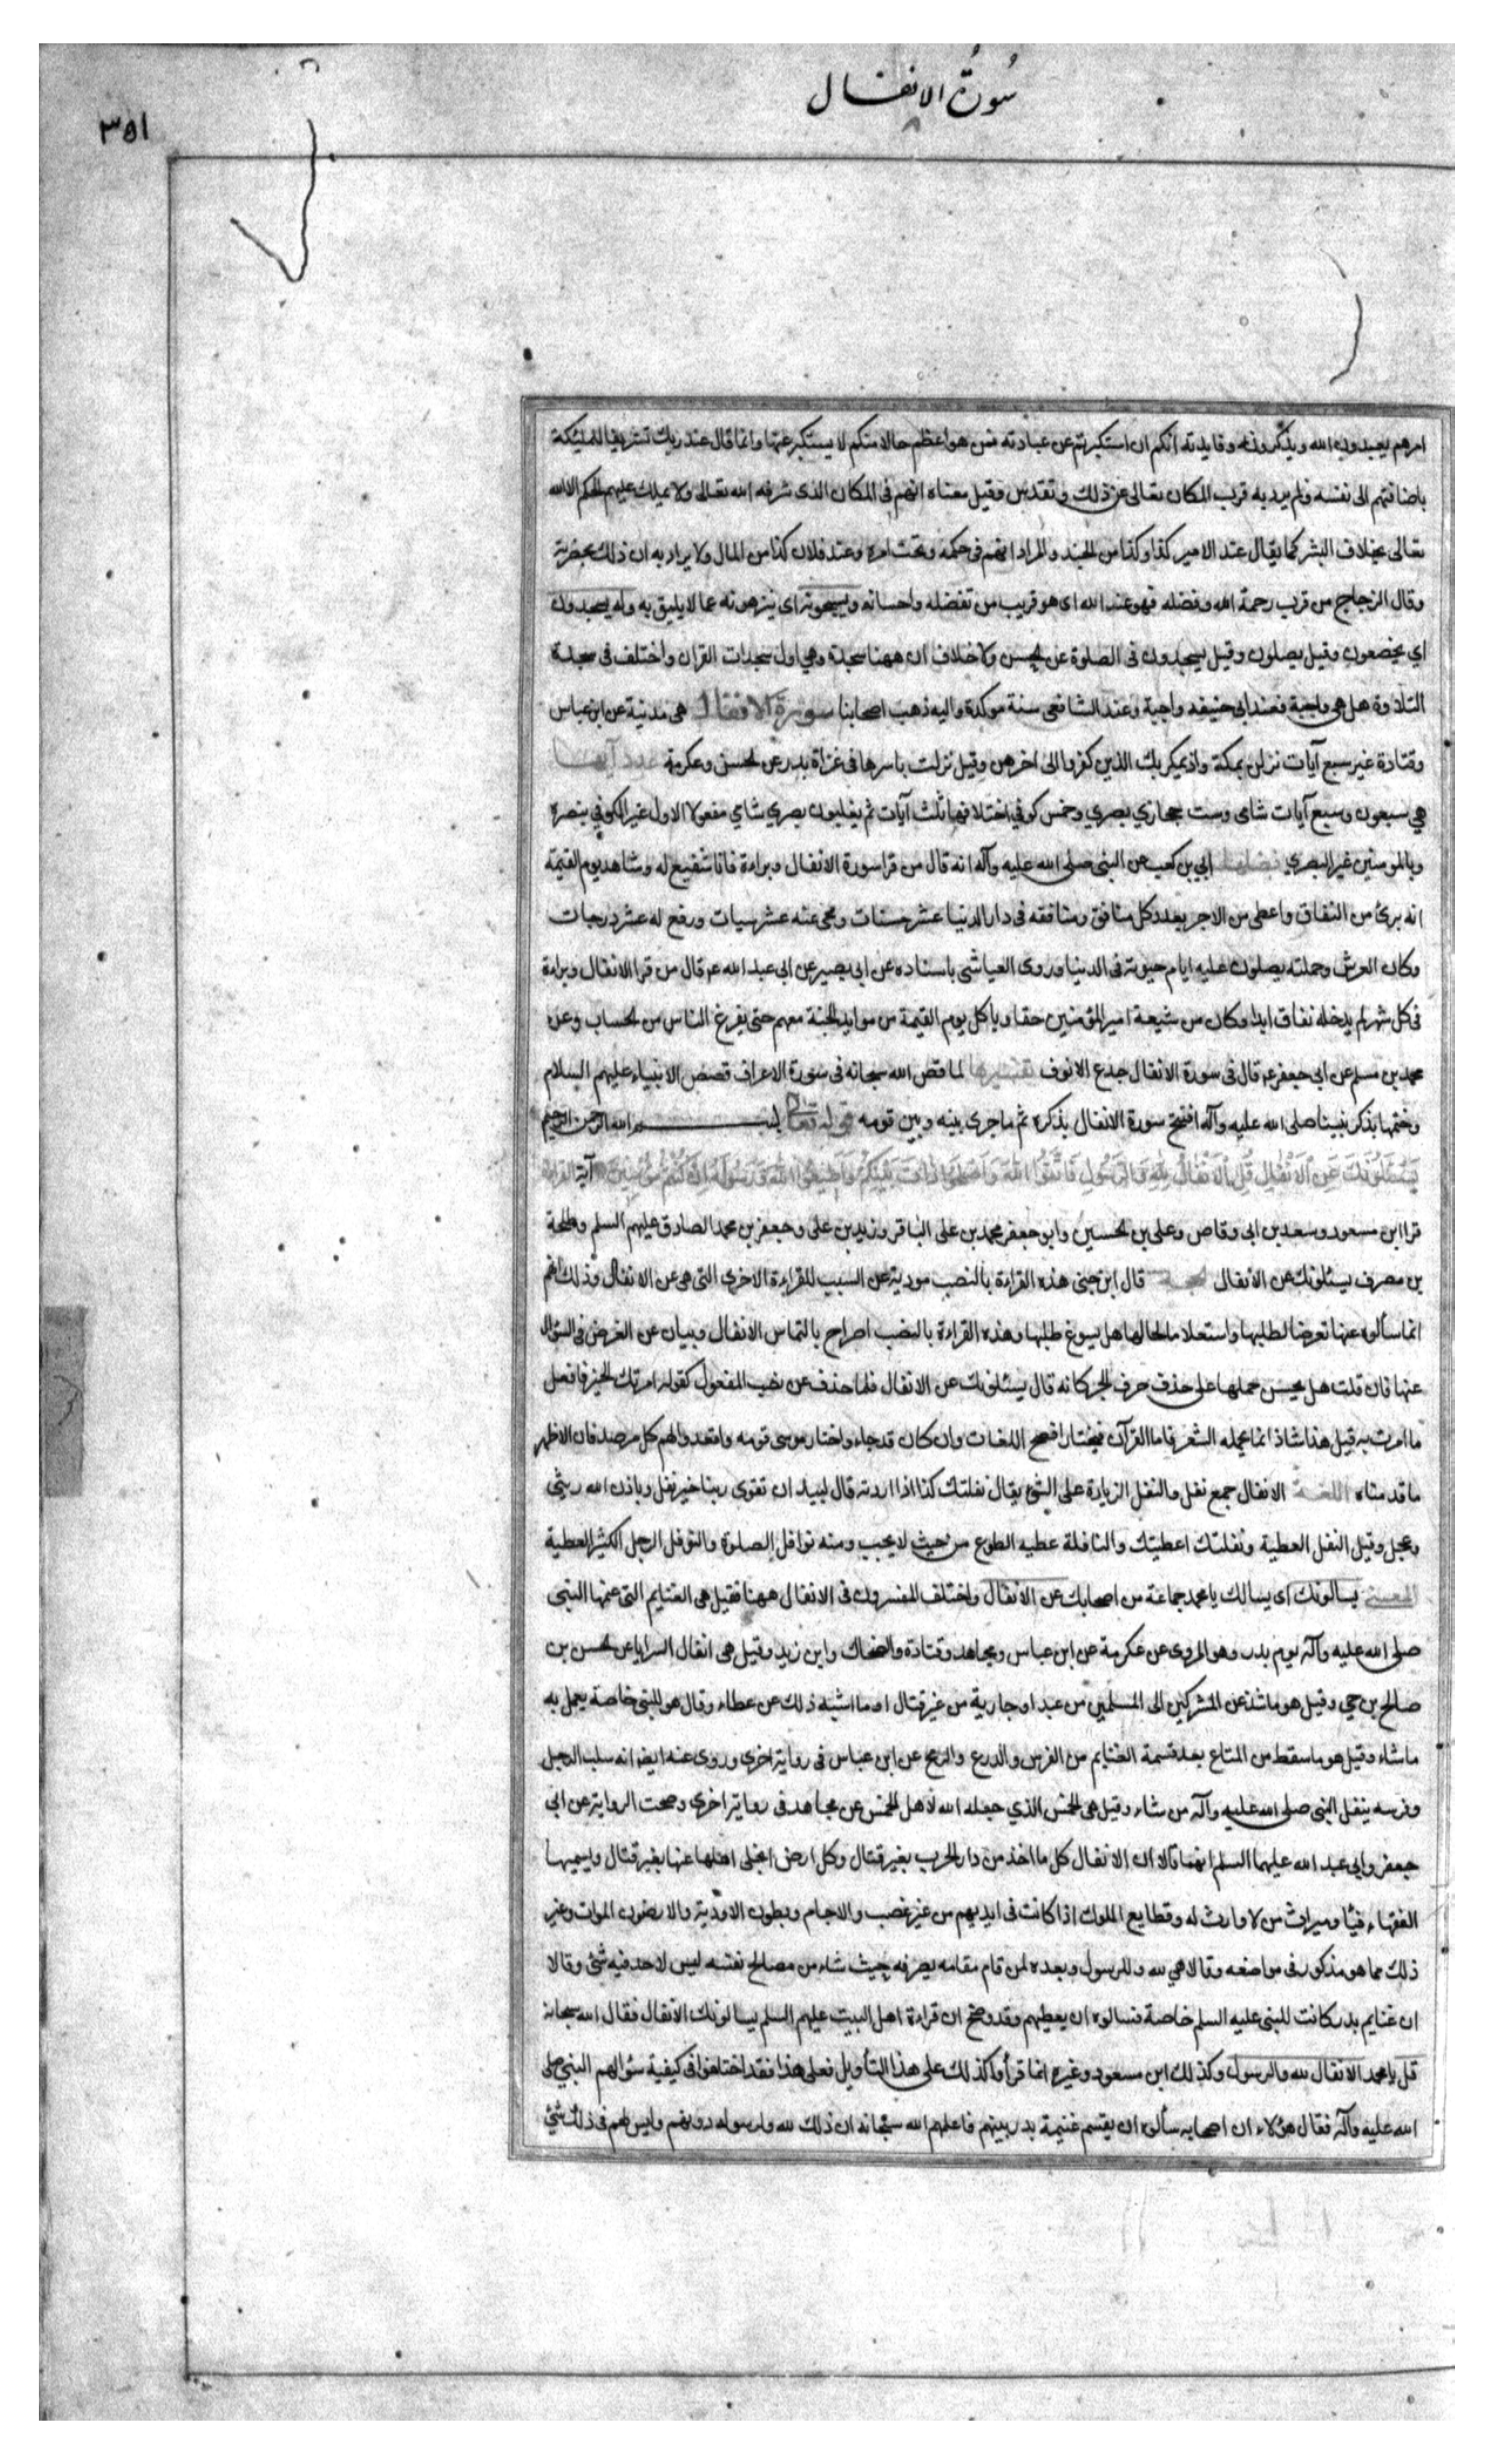 سُورَةُ الانفال
٣٥١
امرهم يعبدون الله ويذكرونه وفايدته انكم ان استكبرتم عن عبادته فمن هو اعظم حالا منكم لا يستكبر عنها وانما قال عند ربك تشريفا للملئكة
باضافتهم الى نفسه ولم يرد به قرب المكان تعالى عن ذلك وتقدس وقيل معناه انهم فى المكان الذى شرفه الله تعالى ولا يملك عليهم الحكم الا الله
تعالى بخلاف البشر كما يقال عند الامير كذا وكذا من الجند والمراد انهم فى حكمه وتحت امره وعند فلان كذا من المال ولا يراد به ان ذلك بحضرته
وقال الزجاج من قرب رحمة الله وفضله فهو عند الله اى هو قريب من تفضله واحسانه ويسبحونه اى ينزهونه عما لا يليق به وله يسجدون
اي يخضعون وقيل يصلون وقيل يسجدون فى الصلوة عن الحسن ولا خلاف ان ههنا سجدة وهي اول سجدات القران واختلف فى سجدة
التلاوة هل هى واجبة فعند ابى حنيفه واجبة وعند الشافعى سنة موكدة واليه ذهب اصحابنا سورة الانفال هى مدنية عن ابن عباس
وقتادة غير سبع آيات نزلن بمكة واذ يمكر بك الذين كفروا الى اخرهن وقيل نزلت باسرها فى غزاة بدر عن الحسن وعكرمة عدد آيها
هي سبعون وسبع آيات شامى وست حجازي بصري وخمس كوفي اختلافها ثلث آيات ثم يغلبون بصري شامي مفعولا الاول غير الكوفي بنصره
وبالمومنين غير البصري فضلها ابي بن كعب عن النبى صلى الله عليه وآله انه قال من قرا سورة الانفال وبراءة فانا شفيع له وشاهد يوم القيمة
انه برئ من النفاق واعطى من الاجر بعدد كل منافق ومنافقه فى دار الدنيا عشر حسنات ومحى عنه عشر سيات ورفع له عشر درجات
وكان العرش وحملته يصلون عليه ايام حيوته فى الدنيا وروى العياشى باسناده عن ابى بصير عن ابى عبد الله ع قال من قرا الانفال وبراءة
فى كل شهر لم يدخله نفاق ابدا وكان من شيعة امير المؤمنين حقا وياكل يوم القيمة من موايد الجنة معهم حتى يفرغ الناس من الحساب وعن
محمد بن مسلم عن ابى جعفر ع قال فى سورة الانفال جدع الانوف تفسيرها لما قص الله سبحانه فى سورة الاعراف قصص الانبياء عليهم السلام
وختمها بذكر نبينا صلى الله عليه وآله افتتح سورة الانفال بذكره ثم ما جرى بينه وبين قومه قوله تعالى بسم الله الرحمن الرحيم
يَسْئَلُونَكَ عَنِ الْاَنْفَالِ قُلِ الْاَنْفَالُ لِلّٰهِ وَالرَّسُولِ فَاتَّقُوا اللهَ وَاَصْلِحُوا ذَاتَ بَيْنِكُمْ وَاَطِيعُوا اللهَ وَرَسُولَهُ اِنْ كُنْتُمْ مُؤْمِنِينَ آية القراءة
قرا ابن مسعود وسعد بن ابى وقاص وعلى بن الحسين وابو جعفر محمد بن على الباقر وزيد بن على وجعفر بن محمد الصادق عليهم السلم وطلحة
بن مصرف يسئلونك الانفال الحجة قال ابن جنى هذه القراءة بالنصب مودية عن السبب للقراءة الاخرى التى هى عن الانفال وذلك انهم
انما سألوه عنها تعرضا لطلبها واستعلاما لحالها هل يسوغ طلبها وهذه القراءة بالنصب اصراح بالتماس الانفال وبيان عن الغرض فى السؤال
عنها فان قلت هل يحسن حملها على حذف حرف الجر كانه قال يسئلونك عن الانفال فلما حذف عن نصب المفعول كقوله امرتك الخير فافعل
ما امرت به قيل هذا شاذ انما يحمله الشعر فاما القرآن فيختار افصح اللغات وان كان قد جاء واختار موسى قومه واقعدوا لهم كل مرصد فان الاظهر
ما قدمناه اللغة الانفال جمع نفل والنفل الزيادة على الشئ يقال نفلتك كذا اذا زدته قال لبيد ان تقوى ربنا خير نفل وباذن الله ريثى
وعجل وقيل النفل العطية ونفلتك اعطيتك والنافلة عطيه الطوع من حيث لا يجب ومنه نوافل الصلوة والنوفل الرجل الكثير العطية
المعنى يسالونك اى يسالك يا محمد جماعة من اصحابك عن الانفال واختلف المفسرون فى الانفال ههنا فقيل هى الغنايم التى غنمها النبى
صلى الله عليه وآله يوم بدر وهو المروى عن عكرمة عن ابن عباس ومجاهد وقتادة والضحاك وابن زيد وقيل هى انفال السرايا عن الحسن بن
صالح بن حى وقيل هو ما شذ عن المشركين الى المسلمين من عبد او جارية من غير قتال او ما اشبه ذلك عن عطاء وقال هو للنبى خاصة يعمل به
ما شاء وقيل هو ما سقط من المتاع بعد قسمة الغنايم من الفرس والدرع والرمح عن ابن عباس فى رواية اخرى وروى عنه ايضا انه سلب الرجل
وفرسه ينفل النبى صلى الله عليه وآله من شاء وقيل هى الخمس الذي جعله الله لاهل الخمس عن مجاهد فى رواية اخرى وصحت الرواية عن ابى
جعفر وابى عبد الله عليهما السلم انهما قالا ان الانفال كل ما اخذ من دار الحرب بغير قتال وكل ارض انجلى اهلها عنها بغير قتال ويسميها
الفقهاء فيئا وميراث من لا وارث له وقطايع الملوك اذا كانت فى ايديهم من غير غصب والاجام وبطون الاودية والارضون الموات وغير
ذلك مما هو مذكور فى مواضعه وقالا هي لله وللرسول وبعده لمن قام مقامه يصرفه حيث شاء من مصالح نفسه ليس لاحد فيه شئ وقالا
ان غنايم بدر كانت للنبى عليه السلم خاصة فسالوه ان يعطيهم وقد صح ان قراءة اهل البيت عليهم السلم يسالونك الانفال فقال الله سبحانه
قل يا محمد الانفال لله والرسول وكذلك ابن مسعود وغيره انما قرأوا كذلك على هذا التأويل فعلى هذا فقد اختلفوا فى كيفية سؤالهم النبي صلى
الله عليه وآله فقال هؤلاء ان اصحابه سألوه ان يقسم غنيمة بدر بينهم فاعلمهم الله سبحانه ان ذلك لله ولرسوله دونهم وليس لهم فى ذلك شئ